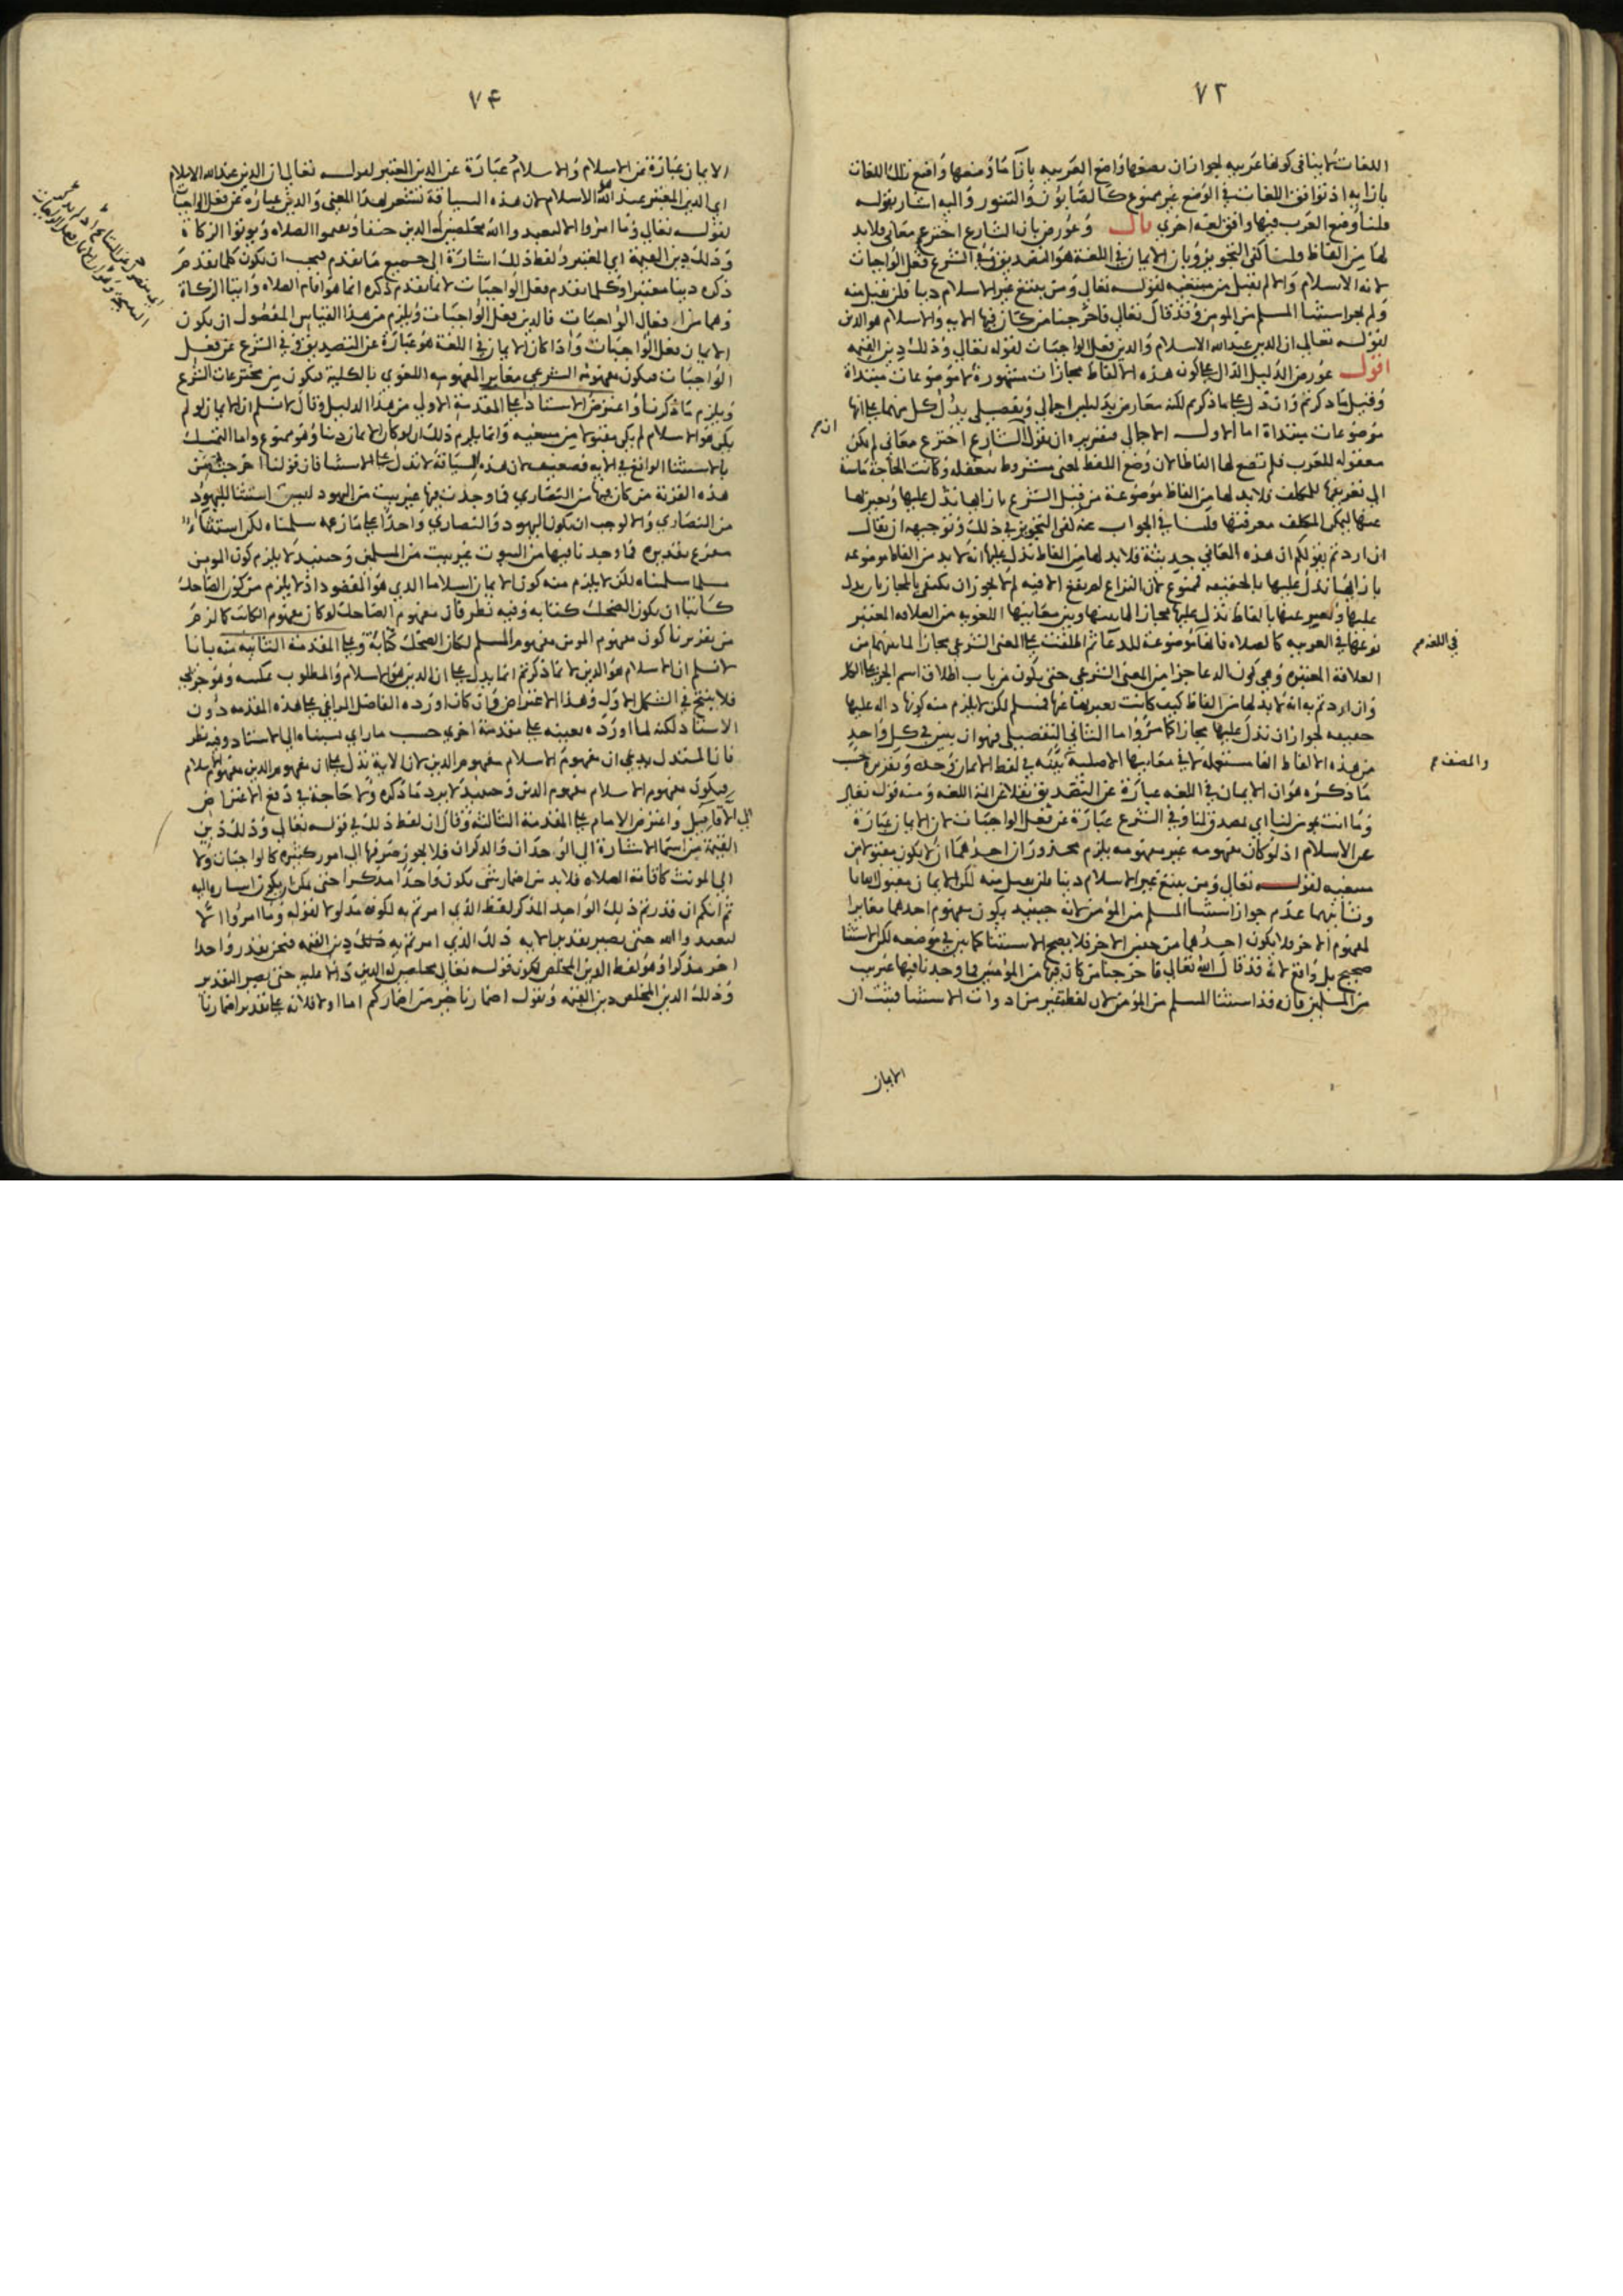 ٧٢
اللغات لا ينافي كونها عربيه لجواز ان يضعها واضع العربيه بازآ ما وضعها واضع تلك اللغات
بازايه اذ توافق اللغات في الوضع غير ممنوع كالصابون والتنور واليه اشار بقوله
قلنا وضع العرب فيها وافق لغه اخري قال وعورض بان الشارع اخترع معاني فلا بد
لها من الفاظ قلنا كفي التجويز وبان الايمان في اللغة هو التصديق وفي الشرع فعل الواجبات
لانه الاسلام والا لم يقبل من مبتغيه لقوله تعالي ومن يبتغ غير الاسلام دينا فلن يقبل منه
ولم يجز استثنا المسلم من المومن وقد قال تعالي فاخرجنا من كان فيها الايه والاسلام هو الدين
لقوله تعالي ان الدين عند الله الاسلام والدين فعل الواجبات لقوله تعالي وذلك دين القيمه
اقول عورض الدليل الدال علي كون هذه الالفاظ مجازات مشهورة لا موضوعات مبتداة
وقيل ما ذكرتم وان دل علي ما ذكرتم لكنه معارض بدليلين اجمالي وتفصيلي يدل كل منهما علي انها
موضوعات مبتداة اما الاول الاجمالي فتقريره ان يقول الشارع اخترع معاني لم يكن
معقوله للعرب فلم تضع لها الفاظا لان وضع اللفظ لمعني مشروط بتعقله وكانت الحاجة ماسة
الي تعريفها للمكلف فلا بد لها من الفاظ موضوعة من قبل الشرع بازايها تدل عليها ويعبر بها
عنها ليمكن المكلف معرفتها قلنا في الجواب عنه كفي التجويز في ذلك وتوجيهه ان يقال
ان اردتم بقولكم ان هذه المعاني حديثة فلا بد لها من الفاظ تدل عليها انه لا بد من الفاظ موضوعه
بازايها تدل عليها بالحقيقه فممنوع لان النزاع لم يقع الا فيه لم لا يجوز ان يكتفي بالمجاز بان يدل
عليها ويعبر عنها بالفاظ تدل عليها مجازا لما بينها وبين معانيها اللغويه من العلاقه المعتبر
نوعها في العربيه كالصلاه فانها موضوعة للدعا ثم اطلقت علي المعني الشرعي مجازا لما بينهما من
العلاقة المعتبره وهي كون الدعا جزا من المعني الشرعي حتي يكون من باب اطلاق اسم الجزء علي الكل
وان اردتم به انه لا بد لها من الفاظ كيف كانت تعبر بها عنها فمسلم لكن لا يلزم منه كونها داله عليها
حقيقه لجواز ان تدل عليها مجازا كما مر واما الثاني التفصيلي فهو ان يبين في كل واحد
من هذه الالفاظ انها مستعمله لا في معانيها الاصليه بينه في لفظ الايمان وحده وتقريره حسب
ما ذكره هو ان الايمان في اللغه عبارة عن التصديق بنقل ائمة اللغه ومنه قوله تعالي
وما انت بمومن لنا اي بمصدق لنا وفي الشرع عبارة عن فعل الواجبات لان الايمان عبارة
عن الاسلام اذ لو كان مفهومه غير مفهومه يلزم محذوران احدهما ان لا يكون مقبولا من
مبتغيه لقوله تعالي ومن يبتغ غير الاسلام دينا فلن يقبل منه لكن الايمان مقبول
وثانيهما عدم جواز استثنا المسلم من المؤمن لانه حينيد يكون مفهوم احدهما مغايرا
لمفهوم الاخر فلا يكون احدهما من جنس الاخر فلا يصح الاستثنا كما بين في موضعه لكن الاستثنا
صحيح بل واقع لانه قد قال الله تعالي فاخرجنا من كان فيها من المؤمنين فما وجدنا فيها غير بيت
من المسلمين فانه قد استثنا المسلم من المؤمن لان لفظة غير من ادوات الاستثنا فثبت ان
الايمان
في اللغه
والمصنف
٧٤
الايمان عبارة عن الاسلام والاسلام عبارة عن الدين المعتبر لقوله تعالي ان الدين عند الله الاسلام
اي الدين المعتبر عند الله الاسلام لان هذه السياقة تشعر بهذا المعني والدين عبارة عن فعل الواجبات
لقوله تعالي وما امروا الا ليعبدوا الله مخلصين له الدين حنفا ويقيموا الصلاه ويوتوا الزكاة
وذلك دين القيمة اي المعتبر ولفظ ذلك اشارة الي جميع ما تقدم فيجب ان يكون كلما تقدم
ذكره دينا معتبرا وكلما تقدم فعل الواجبات لان ما تقدم ذكره انما هو اقام الصلاه وايتا الزكاة
وهما من افعال الواجبات فالدين فعل الواجبات ويلزم من هذا القياس المفصول ان يكون
الايمان فعل الواجبات واذا كان الايمان في اللغة هو عبارة عن التصديق وفي الشرع عن فعل
الواجبات فيكون مفهومه الشرعي مغاير المفهومه اللغوي بالكلية فيكون من مخترعات الشرع
ويلزم ما ذكرنا واعترض الاستاد علي المقدمة الاولي من هذا الدليل وقال لا نسلم ان الايمان لو لم
يكن هو الاسلام لم يكن مقبولا من مبتغيه وانما يلزم ذلك ان لو كان الايمان دينا وهو ممنوع واما التمسك
بالاستثنا الواقع في الايه فضعيف لان هذه السياقة لا تدل علي الاستثنا فان قولنا اخرجت من
هذه القرية من كان فيها من النصاري فما وجدت فيها غير بيت من اليهود ليست استثنا لليهود
من النصاري والا لوجب ان يكون اليهود والنصاري واحدا علي ما زعمه سلمناه لكن استثناء
مفرغ تقديره فما وجدنا فيها من البيوت غير بيت من المسلمين وحينيد لا يلزم كون المومن
مسلما سلمناه لكن لا يلزم منه كون الايمان اسلاما الذي هو المقصود اذ لا يلزم من كون الضاحك
كاتبا ان يكون الضحك كتابه وفيه نظر فان مفهوم الضاحك لو كان مفهوم الكاتب كما لزم
من تقريرنا كون مفهوم المومن مفهوم المسلم لكان الضحك كتابة وعلي المقدمة الثانيه منه بانا
لا نسلم ان الاسلام هو الدين لان ما ذكرتم انما يدل علي ان الدين هو الاسلام والمطلوب عكسه وهو جزئي
فلا ينتج في الشكل الاول وهذا الاعتراض وان كان اورده الفاضل المراغي علي هذه المقدمه دون
الاستاد لكنه لما اورده بعينه علي مقدمة اخري حسب ما راي نسبناه الي الاستاد وفيه نظر
فان المستدل يدعي ان مفهوم الاسلام مفهوم الدين لان الاية تدل علي ان مفهوم الدين مفهوم الاسلام
فيكون مفهوم الاسلام مفهوم الدين وحينيد لا يرد ما ذكره ولا حاجة في دفع الاعتراض
الي ما قيل واعترض الامام علي المقدمة الثالثه وقال ان لفظ ذلك في قوله تعالي وذلك دين
القيمة من اسما الاشارة الي الوحدان والذكران فلا يجوز صرفها الي امور كثيره كالواجبات ولا
الي المونث كاقامة الصلاه فلا بد من اضمار شي يكون واحدا مذكرا حتي يمكن ان يكون اشاره اليه
ثم انكم ان قدرتم ذلك الواحد المذكر لفظ الذي امرتم به لكونه مدلولا لقوله وما امروا الا
ليعبدوا الله حتي يصير تقدير الايه ذلك الذي امرتم به ذلك دين القيمه فنحن نقدر واحدا
اخر مذكرا وهو لفظ الدين المخلص لكون قوله تعالي مخلصين له الدين دالا عليه حتي يصير التقدير
وذلك الدين المخلص دين القيمه ونقول اضمارنا خير من اضماركم اما اولا فلانه علي تقدير اضمارنا